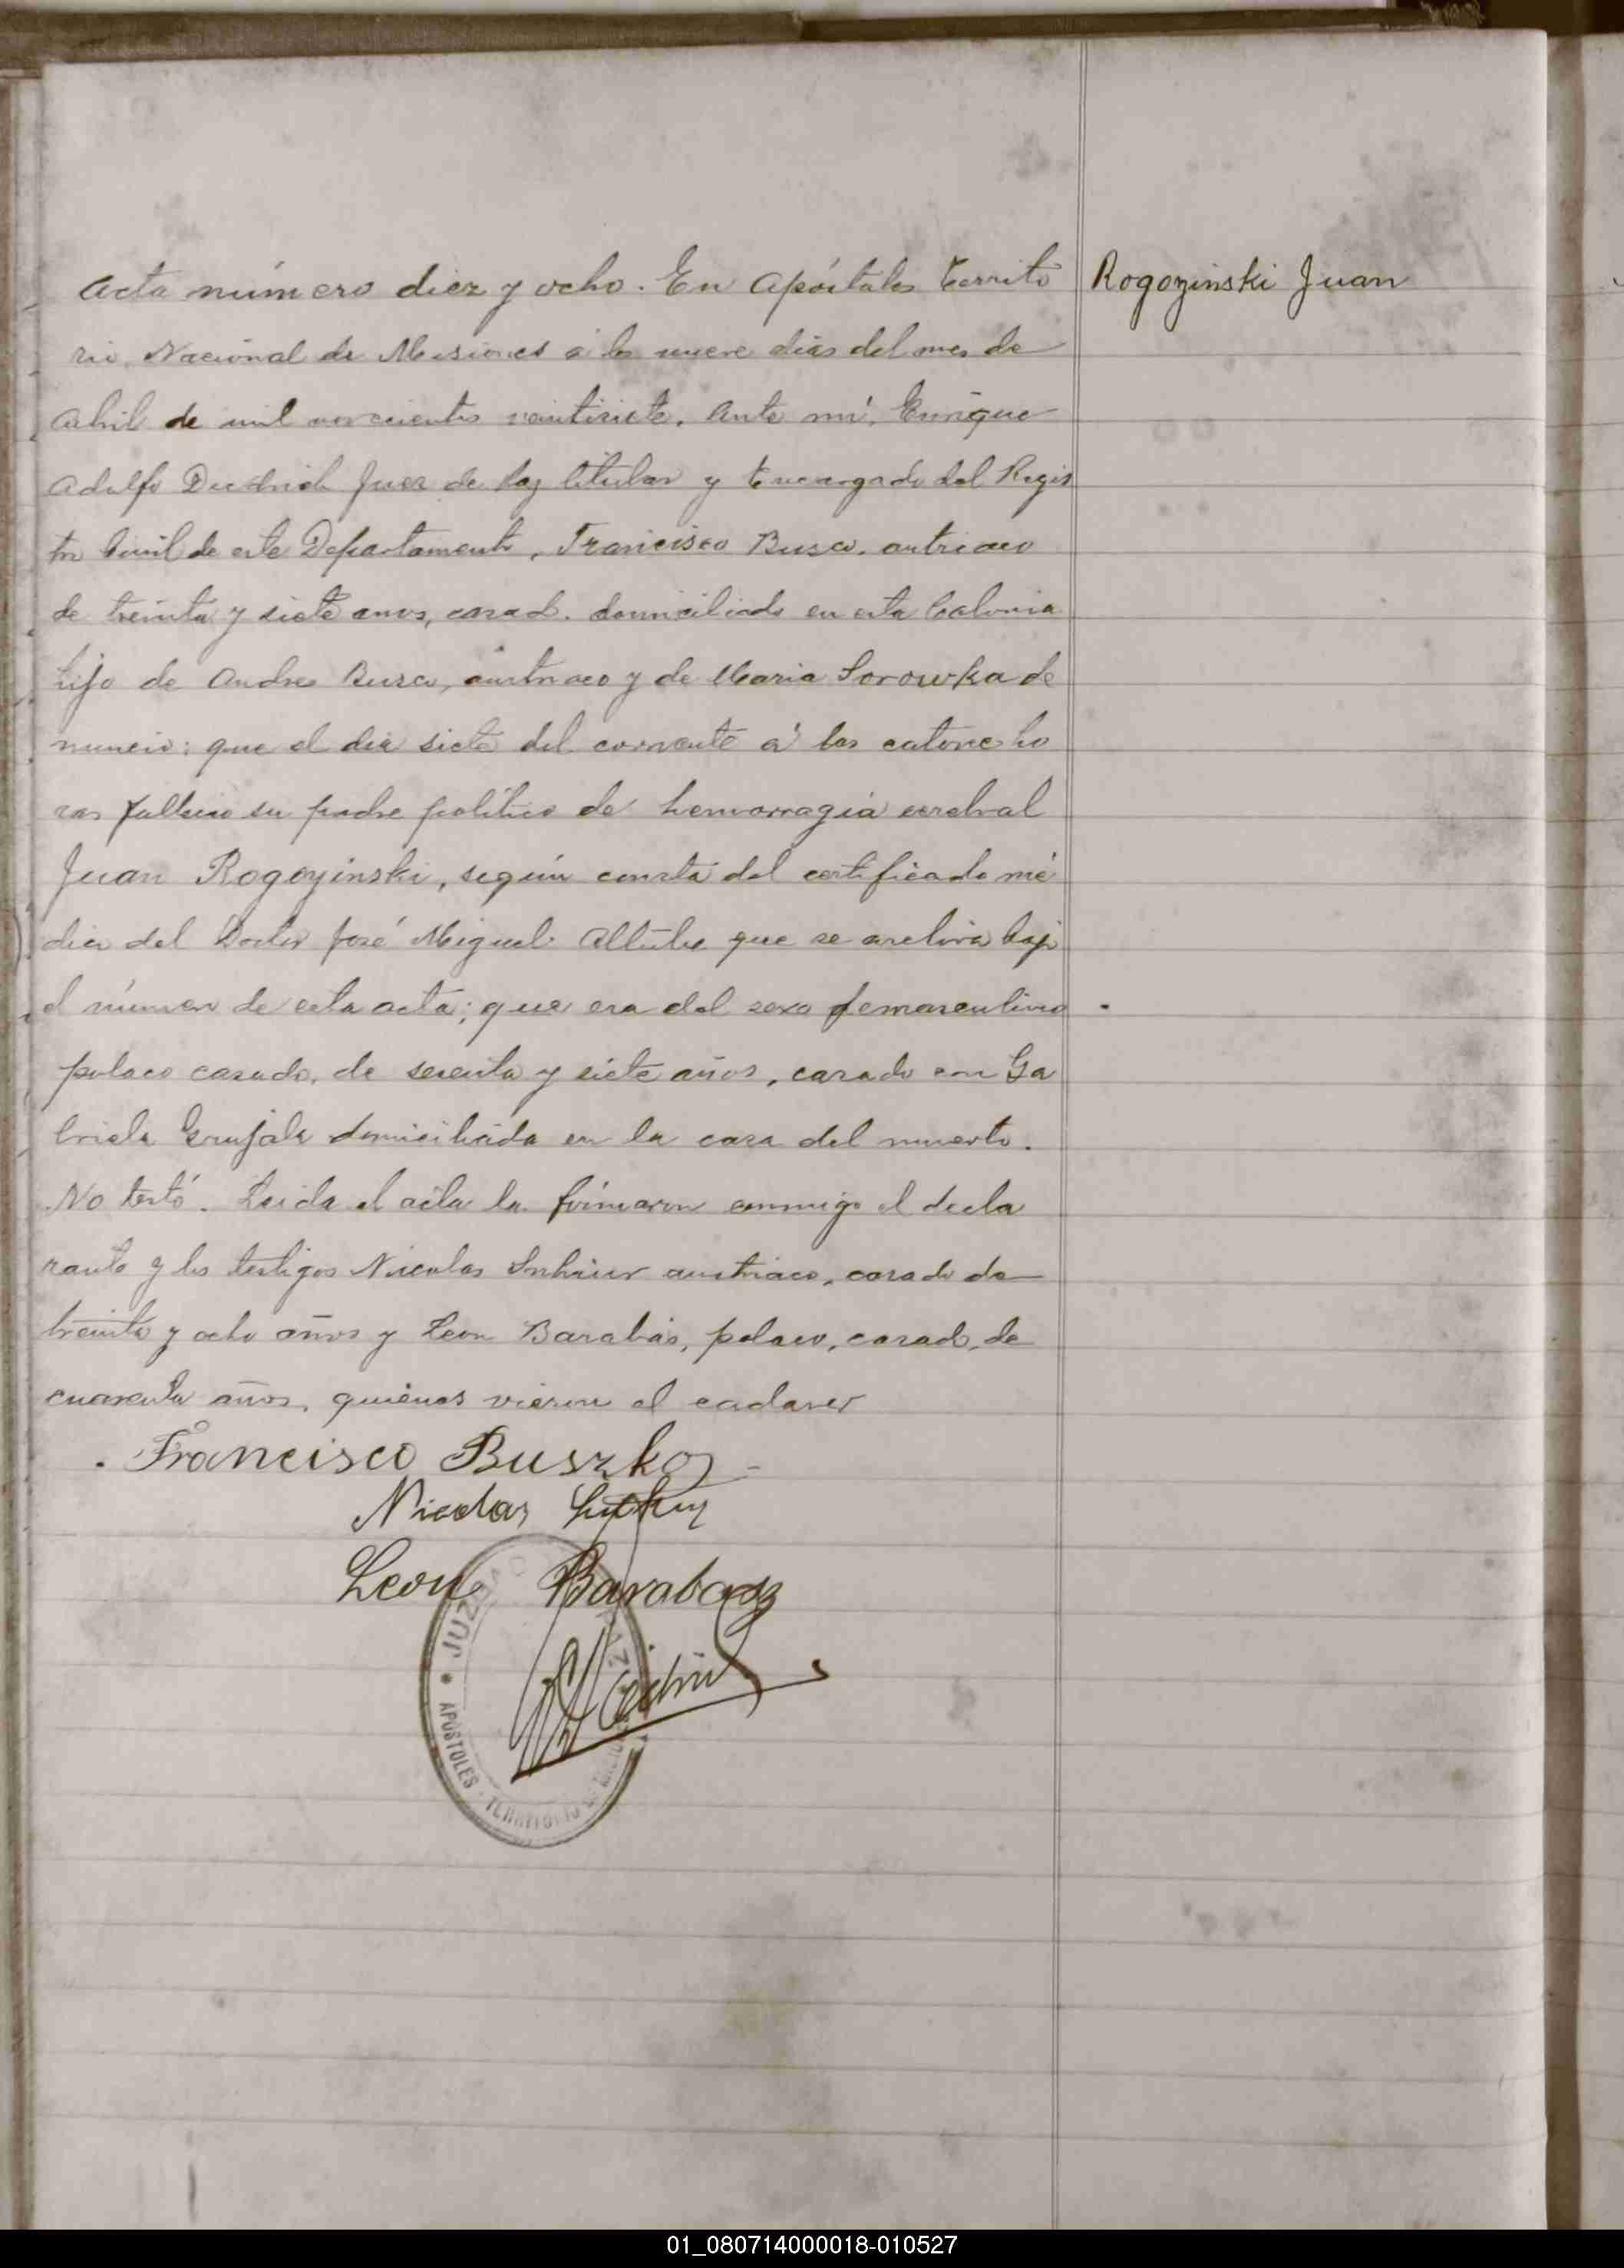 Acta número diez y ocho. En Apóstoles Territo
rio Nacional de Misiones á los nueve dias del mes de
Abril de mil novecientos veintisiete. Ante mí, Enrique
Adolfo Diedrich Juez de Paz titular y Encargado del Regis
tro Civil de este Departamento, Francisco Busco, autriaco
de treinta y siete anos, casado. domiciliado en esta Colonia
hijo de Andres Busco, austriaco y de Maria Sorowka de
nuncio: que el dia siete del corriente á las catorce ho
ras fallecio su padre politico de hemorragia cerebral
Juan Rogozinski, según consta del certificado mé
dico del Doctor José Miguel que se archiva bajo
el número de esta acta; que era del sexo femasculino
polaco casado, de sesenta y siete años, casado con Ga
briela domiciliada en la casa del muerto.
No testó. Leida el acta la firmaron conmigo el decla
rante y los testigos Nicolas austriaco, casado de
treinta y ocho años y Leon Barabás, polaco, casado, de
cuarenta años, quienes vieron el cadaver
Francisco Buszko
Nicolas
Leon Barabasz
JUZ
APOSTOLES - TERRITORIO
Rogozinski Juan
01_080714000018-010527